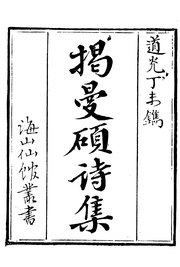 道光丁未鐫
揭曼碩诗集
海山仙館叢書